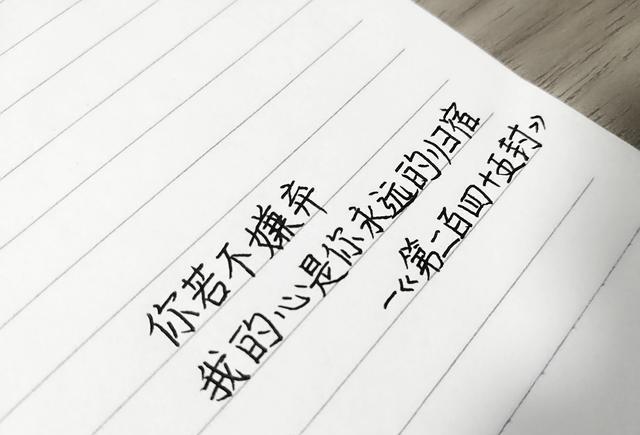 你若不嫌弃
我的心是你永远的归宿
—《第二百四十五封》